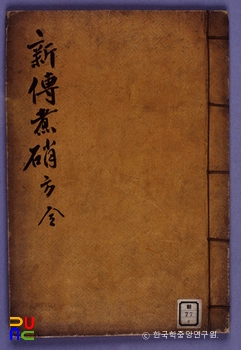 新傳煮硝方 全
© 한국학중앙연구원